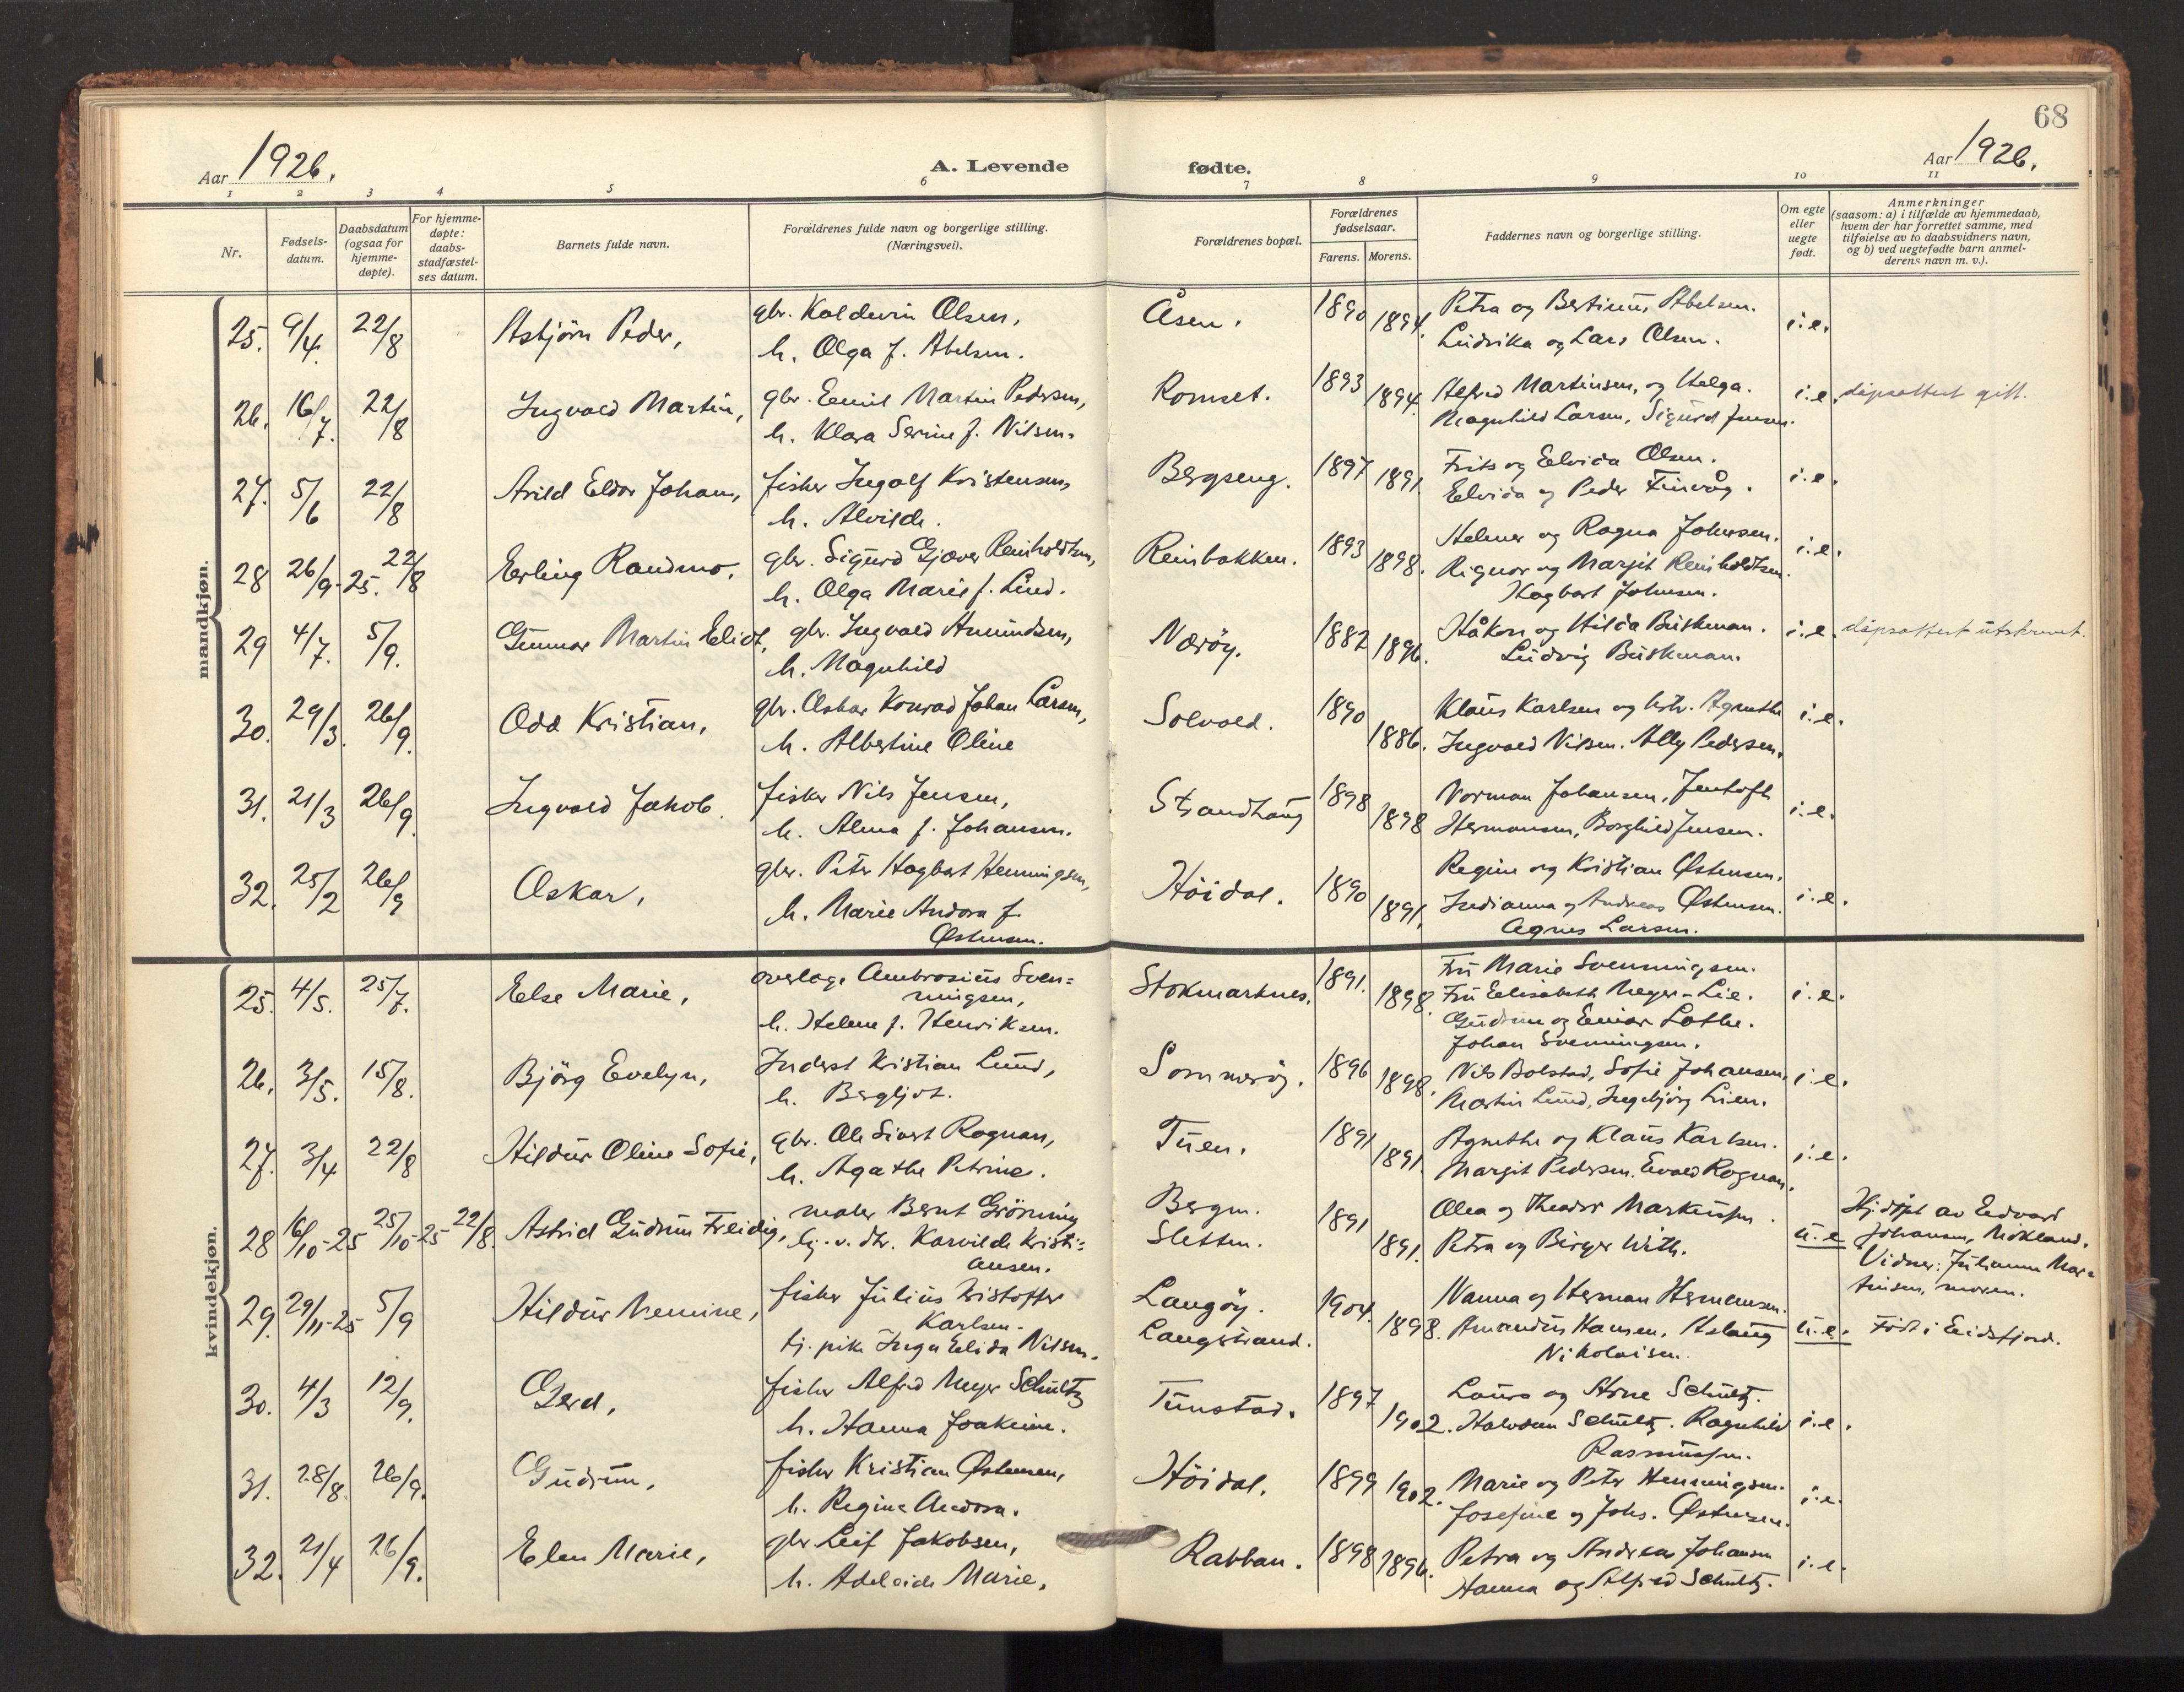 68
Aar 1926.
A. Levende fødte.
Aar 1926.
1 2 3 4 5 6 7 8 9 10 11
Nr.
Fødsels-
datum.
Daabsdatum
(ogsaa for
hjemme-
døpte).
For hjemme-
døpte:
daabs-
stadfæstel-
ses datum.
Barnets fulde navn.
Forældrenes fulde navn og borgerlige stilling.
(Næringsvei).
Forældrenes bopæl.
Forældrenes
fødselsaar.
Farens. Morens.
Faddernes navn og borgerlige stilling.
Om egte
eller
uegte
født.
Anmerkninger
(saasom: a) i tilfælde av hjemmedaab,
hvem der har forrettet samme, med
tilføielse av to daabsvidners navn,
og b) ved uegtefødte barn anmel-
derens navn m. v.).
mandkjøn.
25. 9/4. 22/8 Asbjörn Peder, gbr. Koldevin Olsen, Åsen. 1890 1894. Petra og Bertinus Abelsen. i.e.
h. Olga f. Abelsen. Ludvika og Lars Olsen.
26. 16/7. 22/8 Ingvald Martin, gbr. Emil Martin Pedersen, Romset. 1893 1894. Alfred Martinsen, og Helga. i.e. dåpsattest gitt.
h. Klara Serine f. Nilsen. Magnhild Larsen, Sigurd Jensen.
27. 5/6 22/8 Arild Eldor Johan, fisker Ingolf Kristensen, Bergseng. 1897 1891. Frits og Elvida Olsen. i.e.
h. Alvilde. Elvida og Peder Finvåg.
28 26/9-25. 22/8 Erling Randmo. gbr. Sigurd Gjæver Reinholdtsen, Reinbakken. 1893 1898. Helmer og Ragna Johnsen. i.e.
h. Olga Marie f. Lund. Rignor og Margit Reinholdtsen.
Hagbart Johnsen.
29 4/7. 5/9. Gunnar Martin Eliot, gbr. Ingvald Amundsen, Næröy. 1882 1896. Håkon og Hilda Buskman. i.e. dåpsattest utskrevet.
h. Magnhild Ludvig Buskman.
30. 29/3. 26/9. Odd Kristian, gbr. Oskar Konrad Johan Larsen, Solvold. 1890 1886. Klaus Karlsen og hstr. Agnethe i.e.
h. Albertine Oline Ingvald Nilsen. Ally Pedersen.
31. 21/3 26/9. Ingvald Jakob. fisker Nils Jensen, Strandhaug 1898 1898 Norman Johansen, Jentoft i.e.
h. Alma f. Johansen. Hermansen, Borghild Jensen.
32. 25/2 26/9 Oskar, gbr. Peter Hagbart Henningsen, Höidal. 1890 1891. Regine og Kristian Østensen. i.e.
h. Marie Andora f. Indianna og Andreas Østensen.
Østensen. Agnes Larsen.
kvindekjøn.
25. 4/5. 25/7. Else Marie, overlæge Ambrosius Sven= Stokmarknes. 1891. 1898. Fru Marie Svenningsen. i.e.
ningsen, Fru Elisabeth Meyer-Lie.
h. Helene f. Henriksen. Gudrun og Einar Lothe.
Johan Svenningsen.
26. 3/5. 15/8. Björg Evelyn, Inderst Kristian Lund, Sommeröy. 1896 1898. Nils Bolstad, Sofie Johansen, i.e.
h. Bergljot. Martin Lund, Ingebjörg Lien.
27. 3/4 22/8 Hildur Oline Sofie, gbr. Ole Sivert Rognan, Tuen. 1891 1891. Agnethe og Klaus Karlsen. i.e.
h. Agathe Petrine. Margit Pedersen. Evald Rognan.
28 16/10-25 25/10-25 22/8. Astrid Gudrun Freidig, maler Bernt Gröning Bergm. 1891 1891. Olea og Theodor Markussen. u.e. Hjdöpt av Edvard
tj. v. dtr. Karvilde Kristi= Sletten. Petra og Birger With. Johansen, Mökland.
ansen. Vidner: Julianna Mar=
tinsen, moren.
29. 29/11-25 5/9 Hildur Nemine, fisker Julius Kristoffer Langöy. 1904. 1898. Nanna og Herman Hermansen. u.e. Födt i Eidsfjord.
Karlsen. Langstrand. Amandus Hansen, Aslaug
tj. pike Inga Elida Nilsen. Nikolaisen.
30. 4/3 12/9. Gerd, fisker Alfred Meyer Schultz Tunstad. 1897 1902. Laura og Arne Schultz. i.e.
h. Hanna Joakime. Halvdan Schultz. Ragnhild
Rasmussen.
31. 28/8. 26/9. Gudrun, fisker Kristian Østensen, Höidal. 1899 1902. Marie og Peter Henningsen. i.e.
h. Regine Andora. Josefine og Johs. Østensen.
32. 21/4 26/9. Elen Marie, gbr Leif Jakobsen, Rabban. 1898 1896. Petra og Andreas Johansen i.e.
h. Adelaide Marie. Hanna og Alfred Schultz.